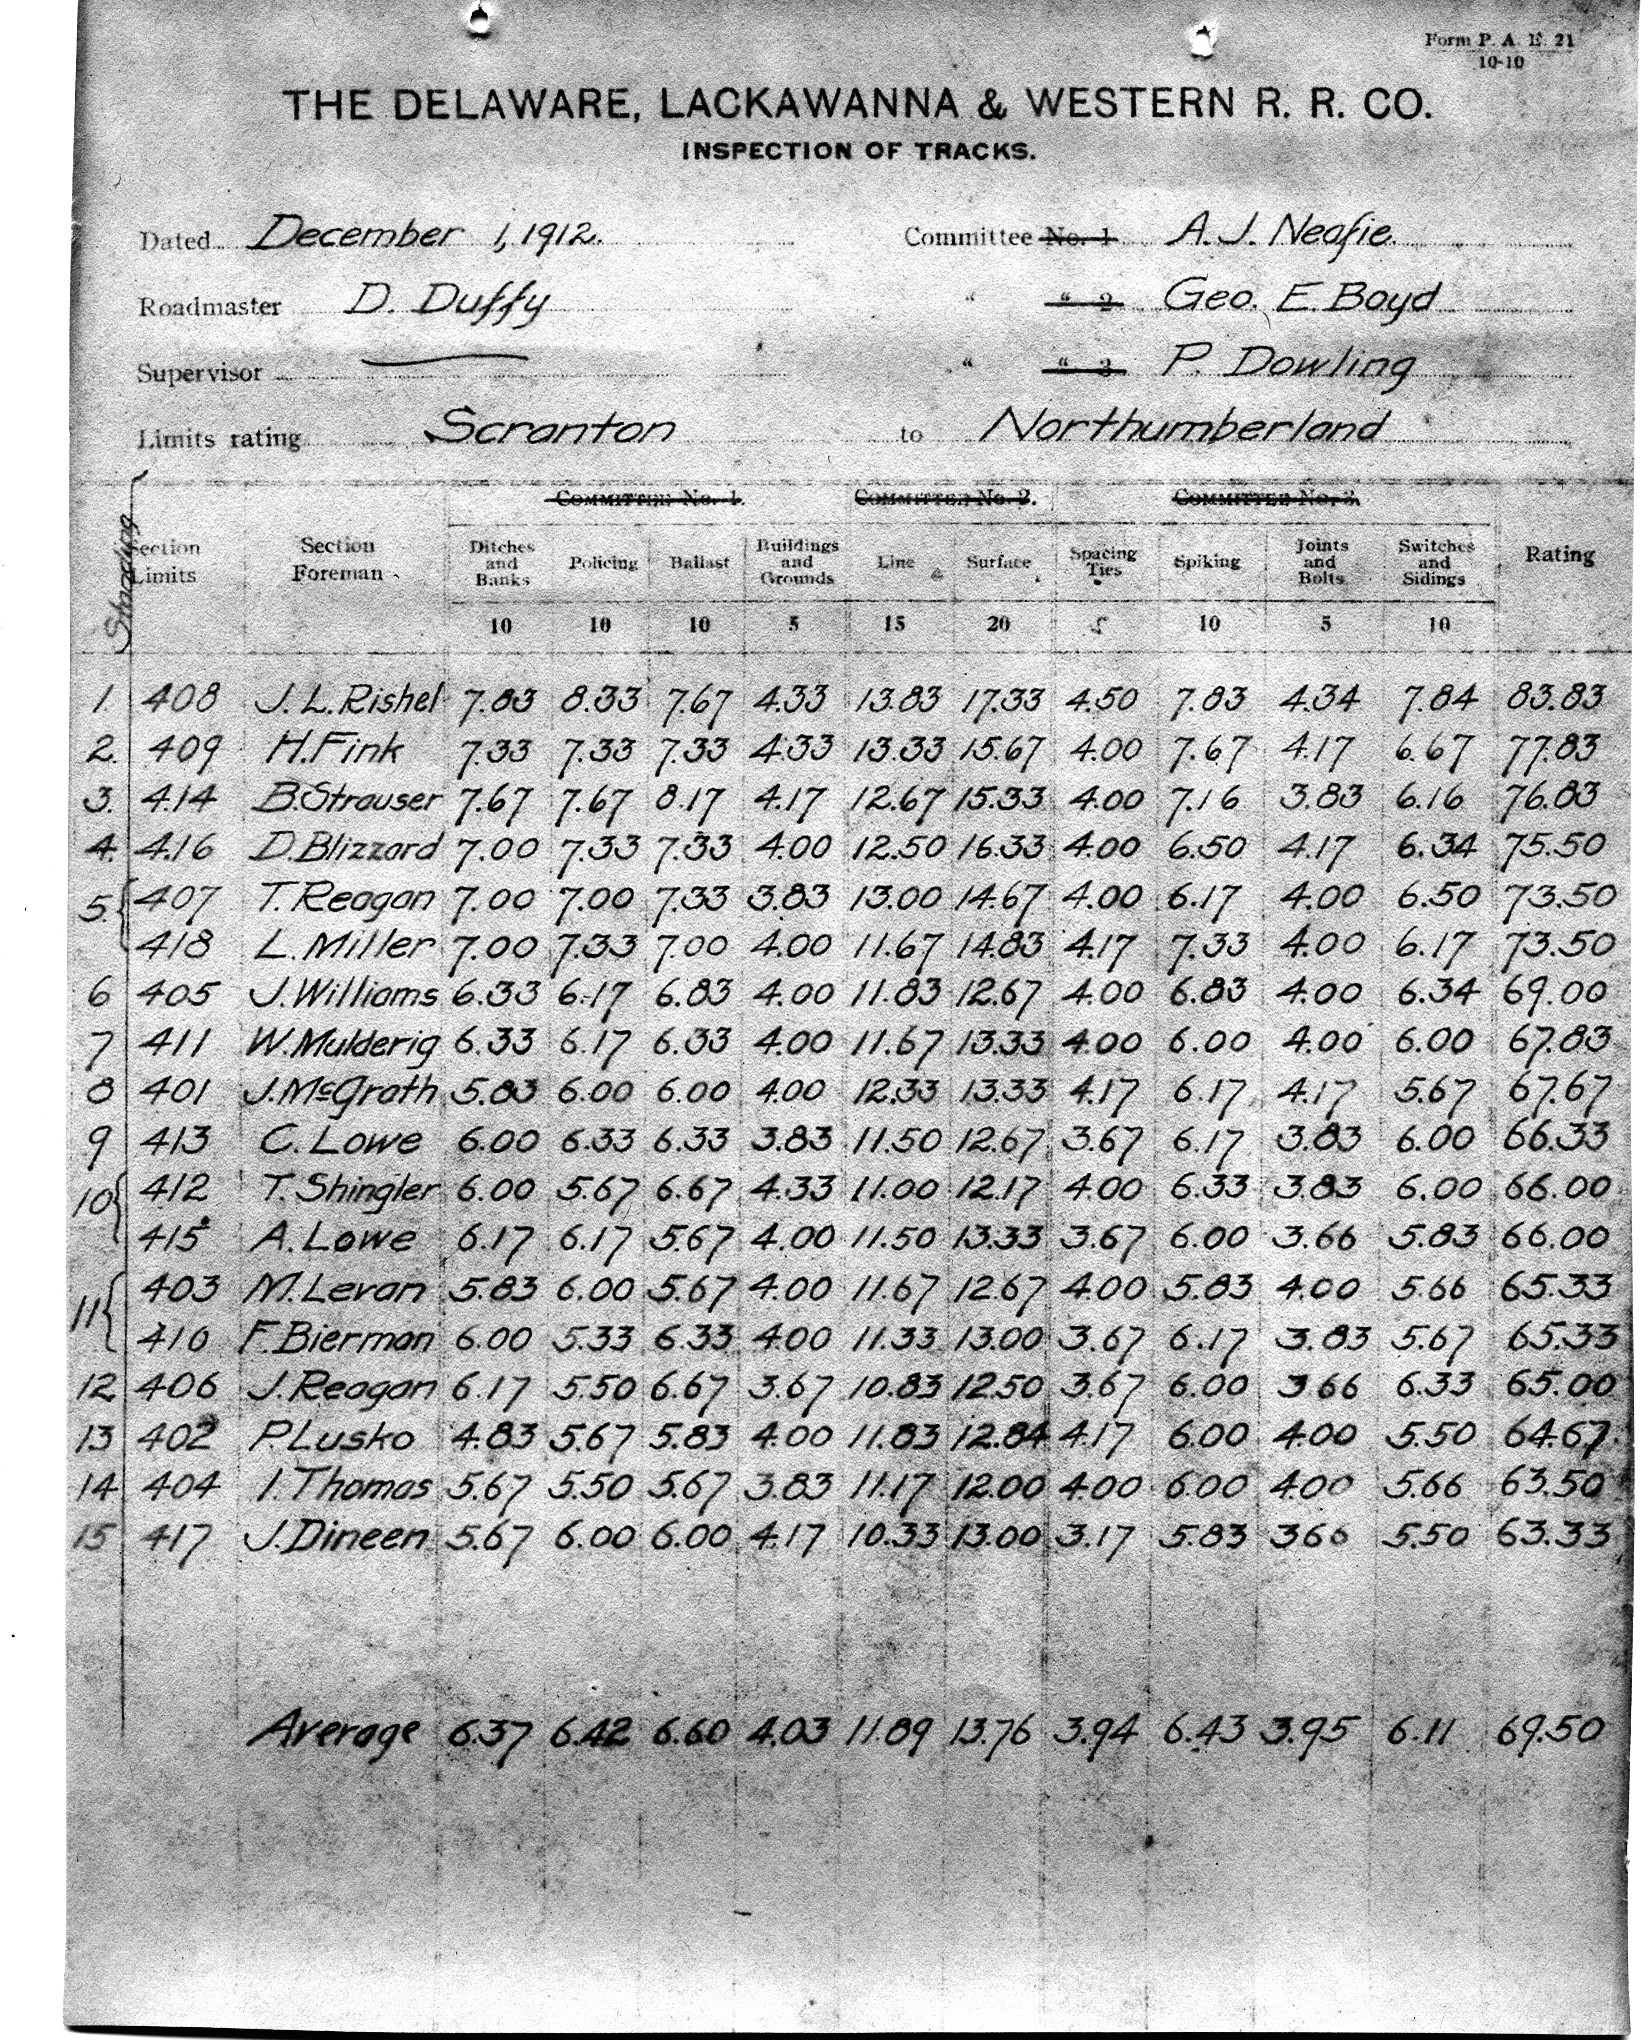 Form P. A. E. 21
10-10
THE DELAWARE, LACKAWANNA & WESTERN R. R. CO.
INSPECTION OF TRACKS.
Dated December 1, 1912. Committee No. 1 A. J. Neafie.
Roadmaster D. Duffy " " 2 Geo. E. Boyd
Supervisor " " 3 P. Dowling
Limits rating Scranton to Northumberland
COMMITTEE No. 1. COMMITTEE No. 2. COMMITTEE No. 3.
Standing Section Limits Section Foreman Ditches and Banks Policing Ballast Buildings and Grounds Line Surface Spacing Ties Spiking Joints and Bolts Switches and Sidings Rating
10 10 10 5 15 20 5 10 5 10
1. 408 J. L. Rishel 7.83 8.33 7.67 4.33 13.83 17.33 4.50 7.83 4.34 7.84 83.83
2. 409 H. Fink 7.33 7.33 7.33 4.33 13.33 15.67 4.00 7.67 4.17 6.67 77.83
3. 414 B. Strauser 7.67 7.67 8.17 4.17 12.67 15.33 4.00 7.16 3.83 6.16 76.83
4. 416 D. Blizzard 7.00 7.33 7.33 4.00 12.50 16.33 4.00 6.50 4.17 6.34 75.50
5. 407 T. Reagan 7.00 7.00 7.33 3.83 13.00 14.67 4.00 6.17 4.00 6.50 73.50
418 L. Miller 7.00 7.33 7.00 4.00 11.67 14.83 4.17 7.33 4.00 6.17 73.50
6 405 J. Williams 6.33 6.17 6.83 4.00 11.83 12.67 4.00 6.83 4.00 6.34 69.00
7 411 W. Mulderig 6.33 6.17 6.33 4.00 11.67 13.33 4.00 6.00 4.00 6.00 67.83
8 401 J. McGrath 5.83 6.00 6.00 4.00 12.33 13.33 4.17 6.17 4.17 5.67 67.67
9 413 C. Lowe 6.00 6.33 6.33 3.83 11.50 12.67 3.67 6.17 3.83 6.00 66.33
10 412 T. Shingler 6.00 5.67 6.67 4.33 11.00 12.17 4.00 6.33 3.83 6.00 66.00
415 A. Lowe 6.17 6.17 5.67 4.00 11.50 13.33 3.67 6.00 3.66 5.83 66.00
11 403 M. Levan 5.83 6.00 5.67 4.00 11.67 12.67 4.00 5.83 4.00 5.66 65.33
410 F. Bierman 6.00 5.33 6.33 4.00 11.33 13.00 3.67 6.17 3.83 5.67 65.33
12 406 J. Reagan 6.17 5.50 6.67 3.67 10.83 12.50 3.67 6.00 3 66 6.33 65.00
13 402 P. Lusko 4.83 5.67 5.83 4.00 11.83 12.84 4.17 6.00 4.00 5.50 64.67
14 404 I. Thomas 5.67 5.50 5.67 3.83 11.17 12.00 4.00 6.00 4.00 5.66 63.50
15 417 J. Dineen 5.67 6.00 6.00 4.17 10.33 13.00 3.17 5.83 366 5.50 63.33
Average 6.37 6.42 6.60 4.03 11.89 13.76 3.94 6.43 3.95 6.11 69.50